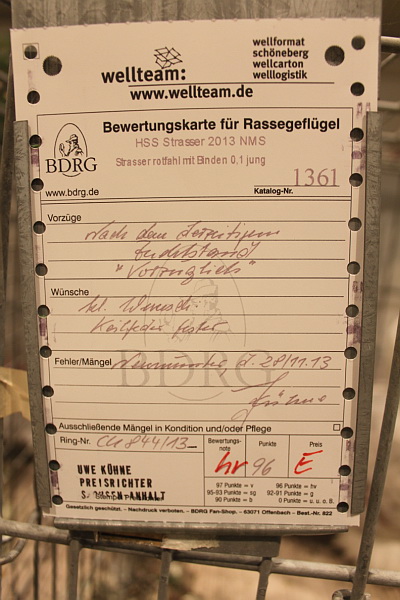 wellteam:
wellformat
schöneberg
wellcarton
welllogistik
www.wellteam.de
BDRG
Bewertungskarte für Rassegeflügel
HSS Strasser 2013 NMS
Strasser rotfahl mit Binden 0,1 jung
www.bdrg.de
Katalog-Nr. 1361
Vorzüge
Nach dem derzeitigen
Zuchtstand
"Vorzüglich"
Wünsche
kl. Wunsch:
Keilfeder fester
BDRG
Fehler/Mängel Neumünster d. 28/11.13
Kühne
Ausschließende Mängel in Kondition und/oder Pflege
Ring-Nr. CU 844/13
Bewertungs-
note
hv
Punkte
96
Preis
E
UWE KÜHNE
PREISRICHTER
SACHSEN-ANHALT
97 Punkte = v
95-93 Punkte = sg
90 Punkte = b
96 Punkte = hv
92-91 Punkte = g
0 Punkte = u.o.M.
Gesetzlich geschützt. – Nachdruck verboten. – BDRG Fan-Shop. – 63071 Offenbach – Best.-Nr. 822